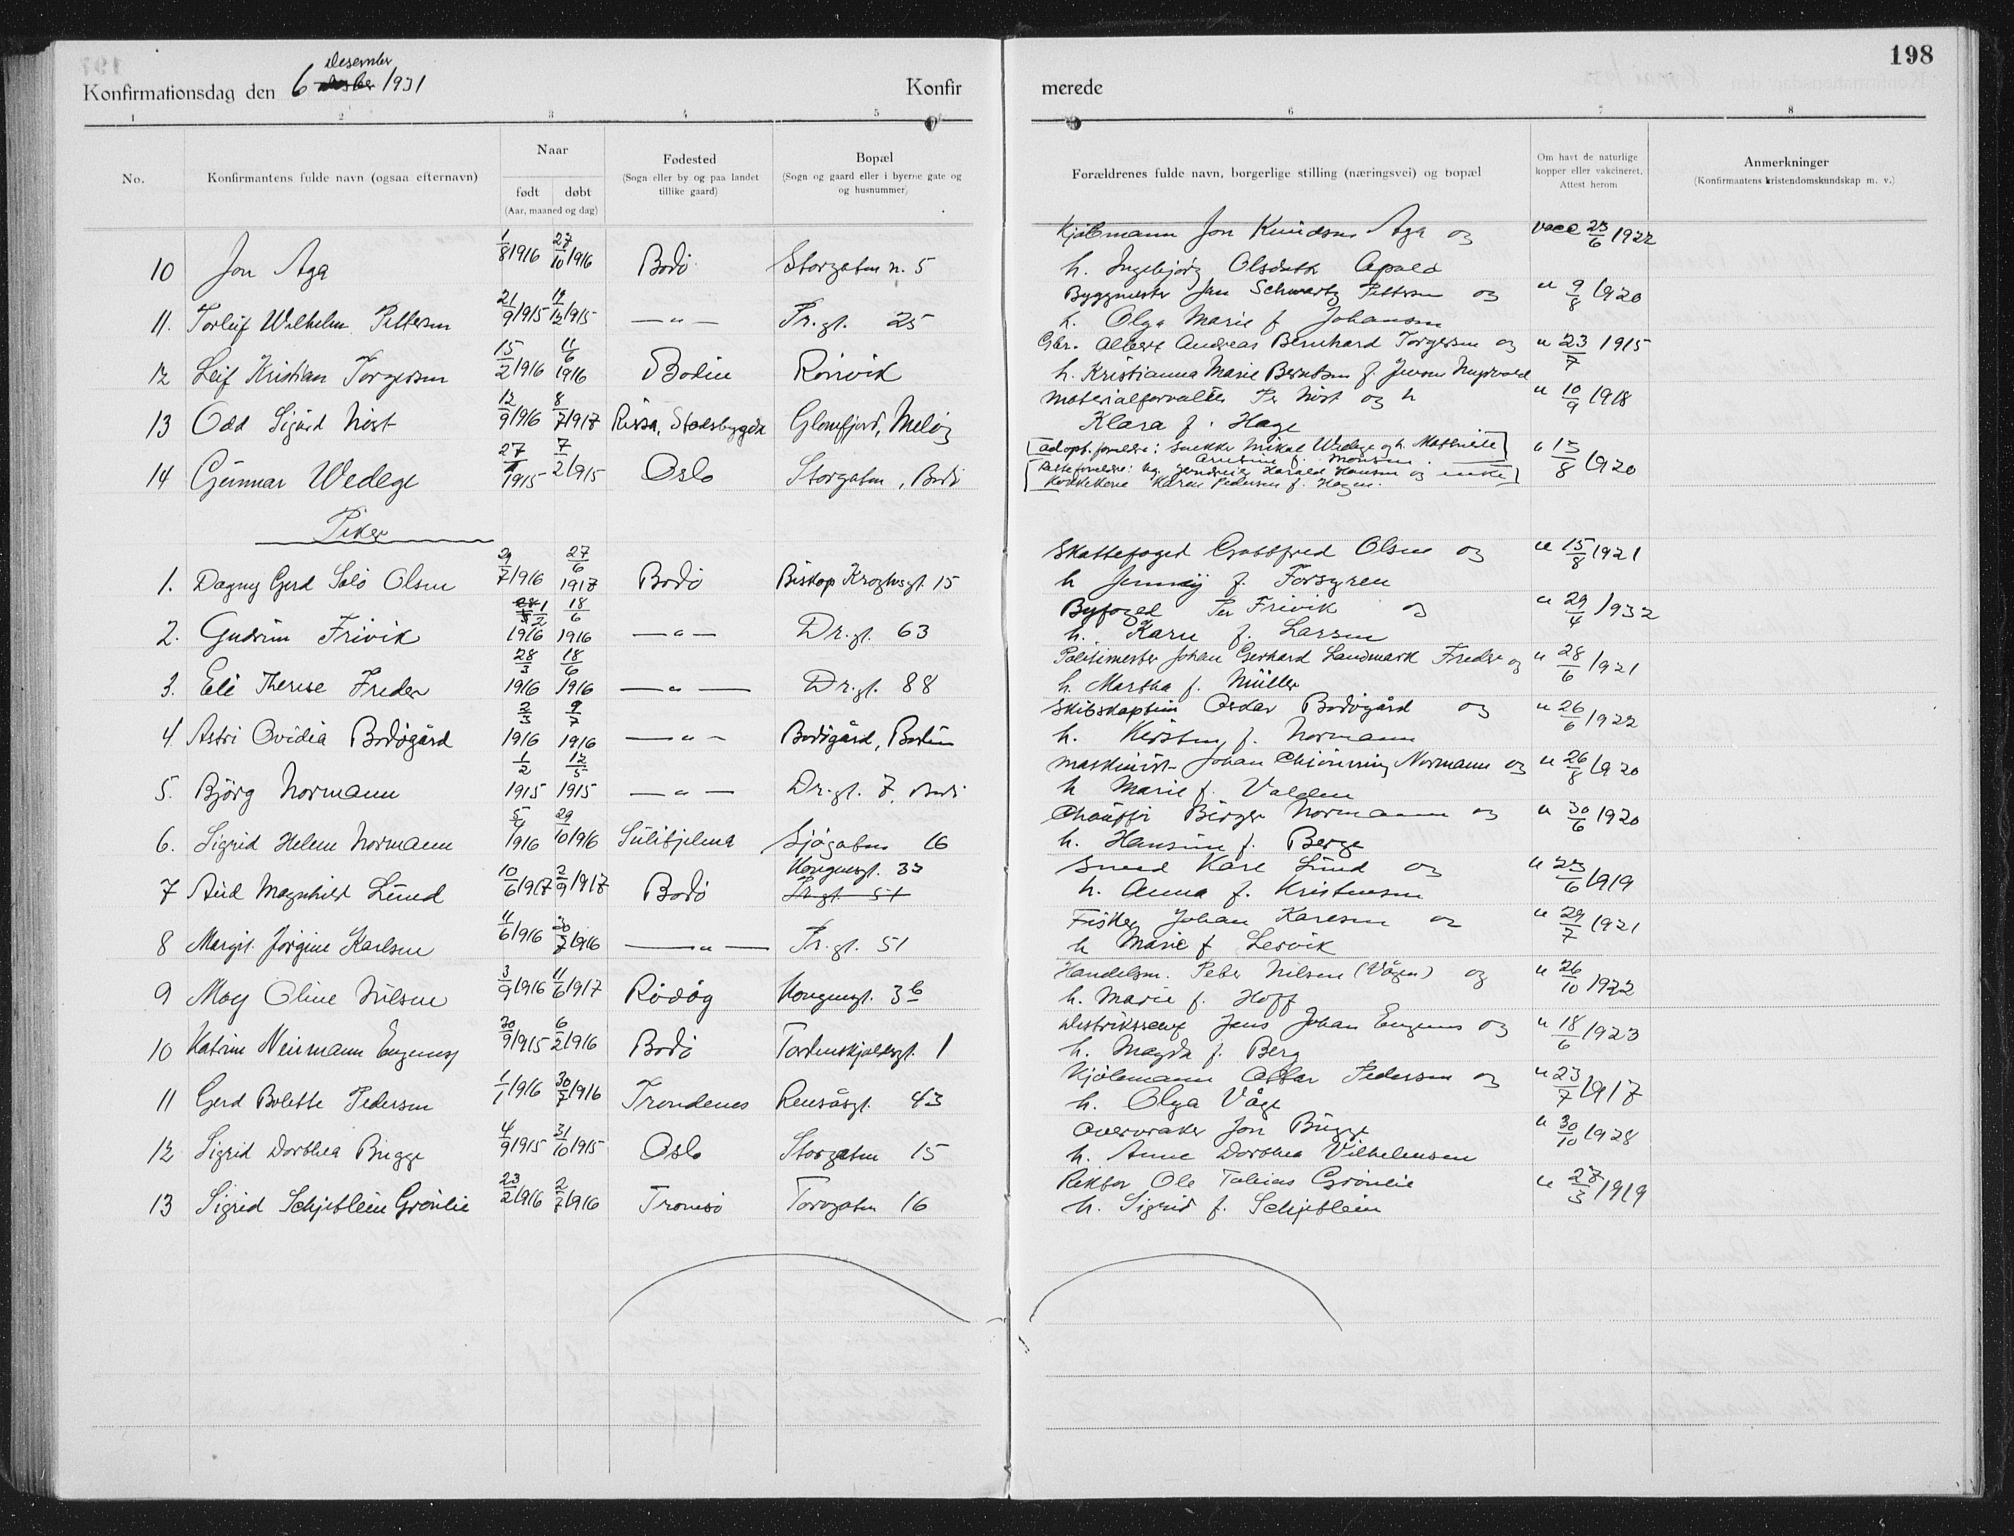 198
Konfirmationsdag den 6 Desember 1931
Konfirmerede
1 2 3 4 5 6 7 8
No.
Konfirmantens fulde navn (ogsaa efternavn)
Naar
født døbt
(Aar, maaned og dag)
Fødested
(Sogn eller by og paa landet
tillike gaard)
Bopæl
(Sogn og gaard eller i byerne gate og
og husnummer)
Forældrenes fulde navn, borgerlige stilling (næringsvei) og bopæl
Om havt de naturlige
kopper eller vakcineret.
Attest herom
Anmerkninger
(Konfirmantens kristendomskundskap m. v.)
10 Jon Aga 1/8 1916 27/10 1916 Bodö Storgaten n. 5 Kjöbmann Jon Knudsen Aga og vacc 23/6 1922
h. Ingebjörg Olsdatter Apold
11. Torleif Wilhelm Pettersen 21/9 1915 12/12 1915 — " — Pr.gt. 25 Byggmester Jan Schwartz Pettersen og " 9/8 1920
h. Olga Marie f Johansen
12 Leif Kristian Torgersen 15/2 1916 11/6 1916 Bodin Rönvik Gbr. Albert Andreas Bernhard Torgersen og " 23/7 1915
h. Kristianna Marie Berntsen f.
13 Odd Sigurd Höst 12/9 1916 8/7 1917 Rissa, Stadsbygda Glomfjord, Melöy Materialforvalter Per Höst og h " 10/9 1918
Klara f. Hage
14 Gunnar Wedege 27/1 1915 7/2 1915 Oslo Storgaten, Bodö [Adopt. foreldre: Snekker Mikal Wedege og h. Mathilde " 13/8 1920
Arntine f. Monsen]
Harald Hansen og enke
Karen Pedersen f. Hagen.]
Piker
1. Dagny Gerd Salö Olsen 29/7 1916 27/6 1917 Bodö Biskop Kroghsgt 15 Skattefoged Gottfred Olsen og " 15/8 1921
h Jenny f. Forsgren
2. Gudrun Frivik 1/2 1916 18/6 1916 — " — Dr.gt. 63 Byfoged Per Frivik og " 29/4 1932
h. Karen f. Larsen
3. Eli Therese Freder 28/3 1916 18/6 1916 — " — Dr.gt. 88 Politimester Johan Gerhard Landmark Freder og " 28/6 1921
h. Martha f. Müller
4 Astri Ovidia Bodögård 2/3 1916 9/7 1916 — " — Bodögård, Bodin Skibskaptein Oskar Bodögård og " 26/6 1922
h. Kirsten f. Normann
5. Björg Normann 1/2 1915 12/5 1915 — " — Dr.gt. 7, Bodö Maskinist Johan Normann og " 26/8 1920
h Marie f. Valden
6. Sigrid Helene Normann 5/4 1916 29/10 1916 Sulitjelma Sjögaten 16 Chaufför Birger Normann og " 30/6 1920
h. Hansine f. Berge
7 Aud Magnhild Lund 10/6 1917 2/9 1917 Bodö Kongensgt. 33 Smed Kåre Lund og " 23/6 1919
Pr.gt. 51 h. Anna f. Kristensen
8 Margit Jörgine Karlsen 11/6 1916 30/7 1916 — " — Pr.gt. 51 Fisker Johan Karlsen og " 29/7 1921
h Marie f Lervik
9 Moy Oline Nilsen 3/9 1916 11/6 1917 Rödöy Kongensgt. 36 Handelsm. Peter Nilsen (Vågen) og " 26/10 1922
h. Marie f. Hoff
10 Katrine Neumann Eugenus 30/9 1915 6/2 1916 Bodö Tordenskjoldsgt. 1 Jens Johan Eugenus og " 18/6 1923
h. Magda f. Berg
11 Gerd Bolette Pedersen 1/1 1916 30/7 1916 Trondenes Rensåsgt. 43 Kjöbmann Ottar Pedersen og " 23/7 1917
h. Olga Våge
12 Sigrid Dorthea Bugge 4/9 1915 31/10 1915 Oslo Storgaten 15 Overvraker Jon Bugge " 30/10 1928
h. Anne Dorthea Vilhelmsen
13 Sigrid Schjetlein Grönlie 23/2 1916 2/7 1916 Tromsö Torvgaten 16 Rektor Ole Tobias Grönlie " 28/3 1919
h. Sigrid f. Schjetlein